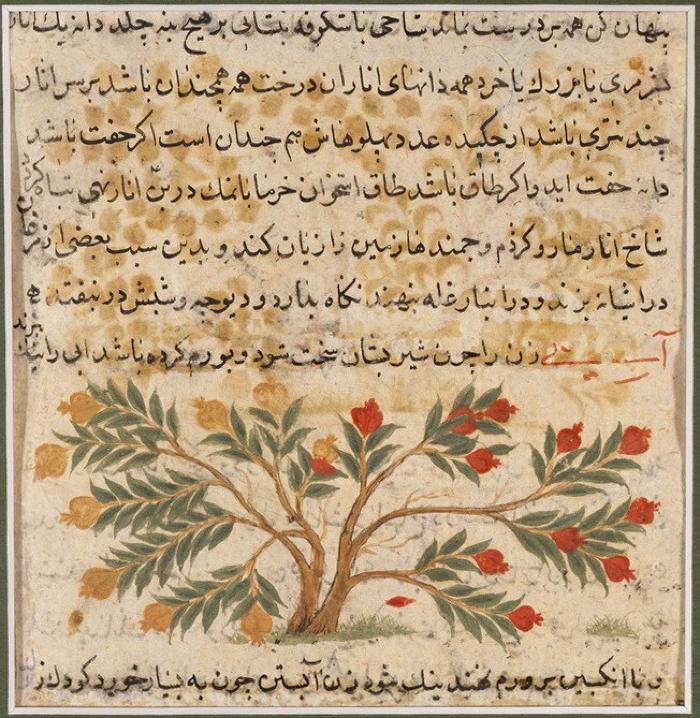 پنهان کن همه بر درست بماند شاخی باشکوفه بستانی بر هیچ بنه جلد دانه یک انار
بشمری یا بزرگ یا خرد همه دانهای اناران درخت همه همچندان باشد بر سر انار
چند شری باشد از چکیده عدد پهلوهاش هم چندان است اکر جفت باشد
دانه جفت اید و اکر طاق باشد طاق استخوان خرما با نمک در بن انار نهی تباه
شاخ انار مار و کژدم و جمندهاء زمین را زیان کند و بدین سبب بعضی از
در اشیانه برند و در انبار غله بنهند نکاه بدارد و دیوچه و شبش در نیفتد
آبی زن را چون شیر پستان سخت شود و بورم کرده باشد ابی را
و با انکبین بر ورم نهند نیک شود زن آبستن چون به بسیار خورد کودک